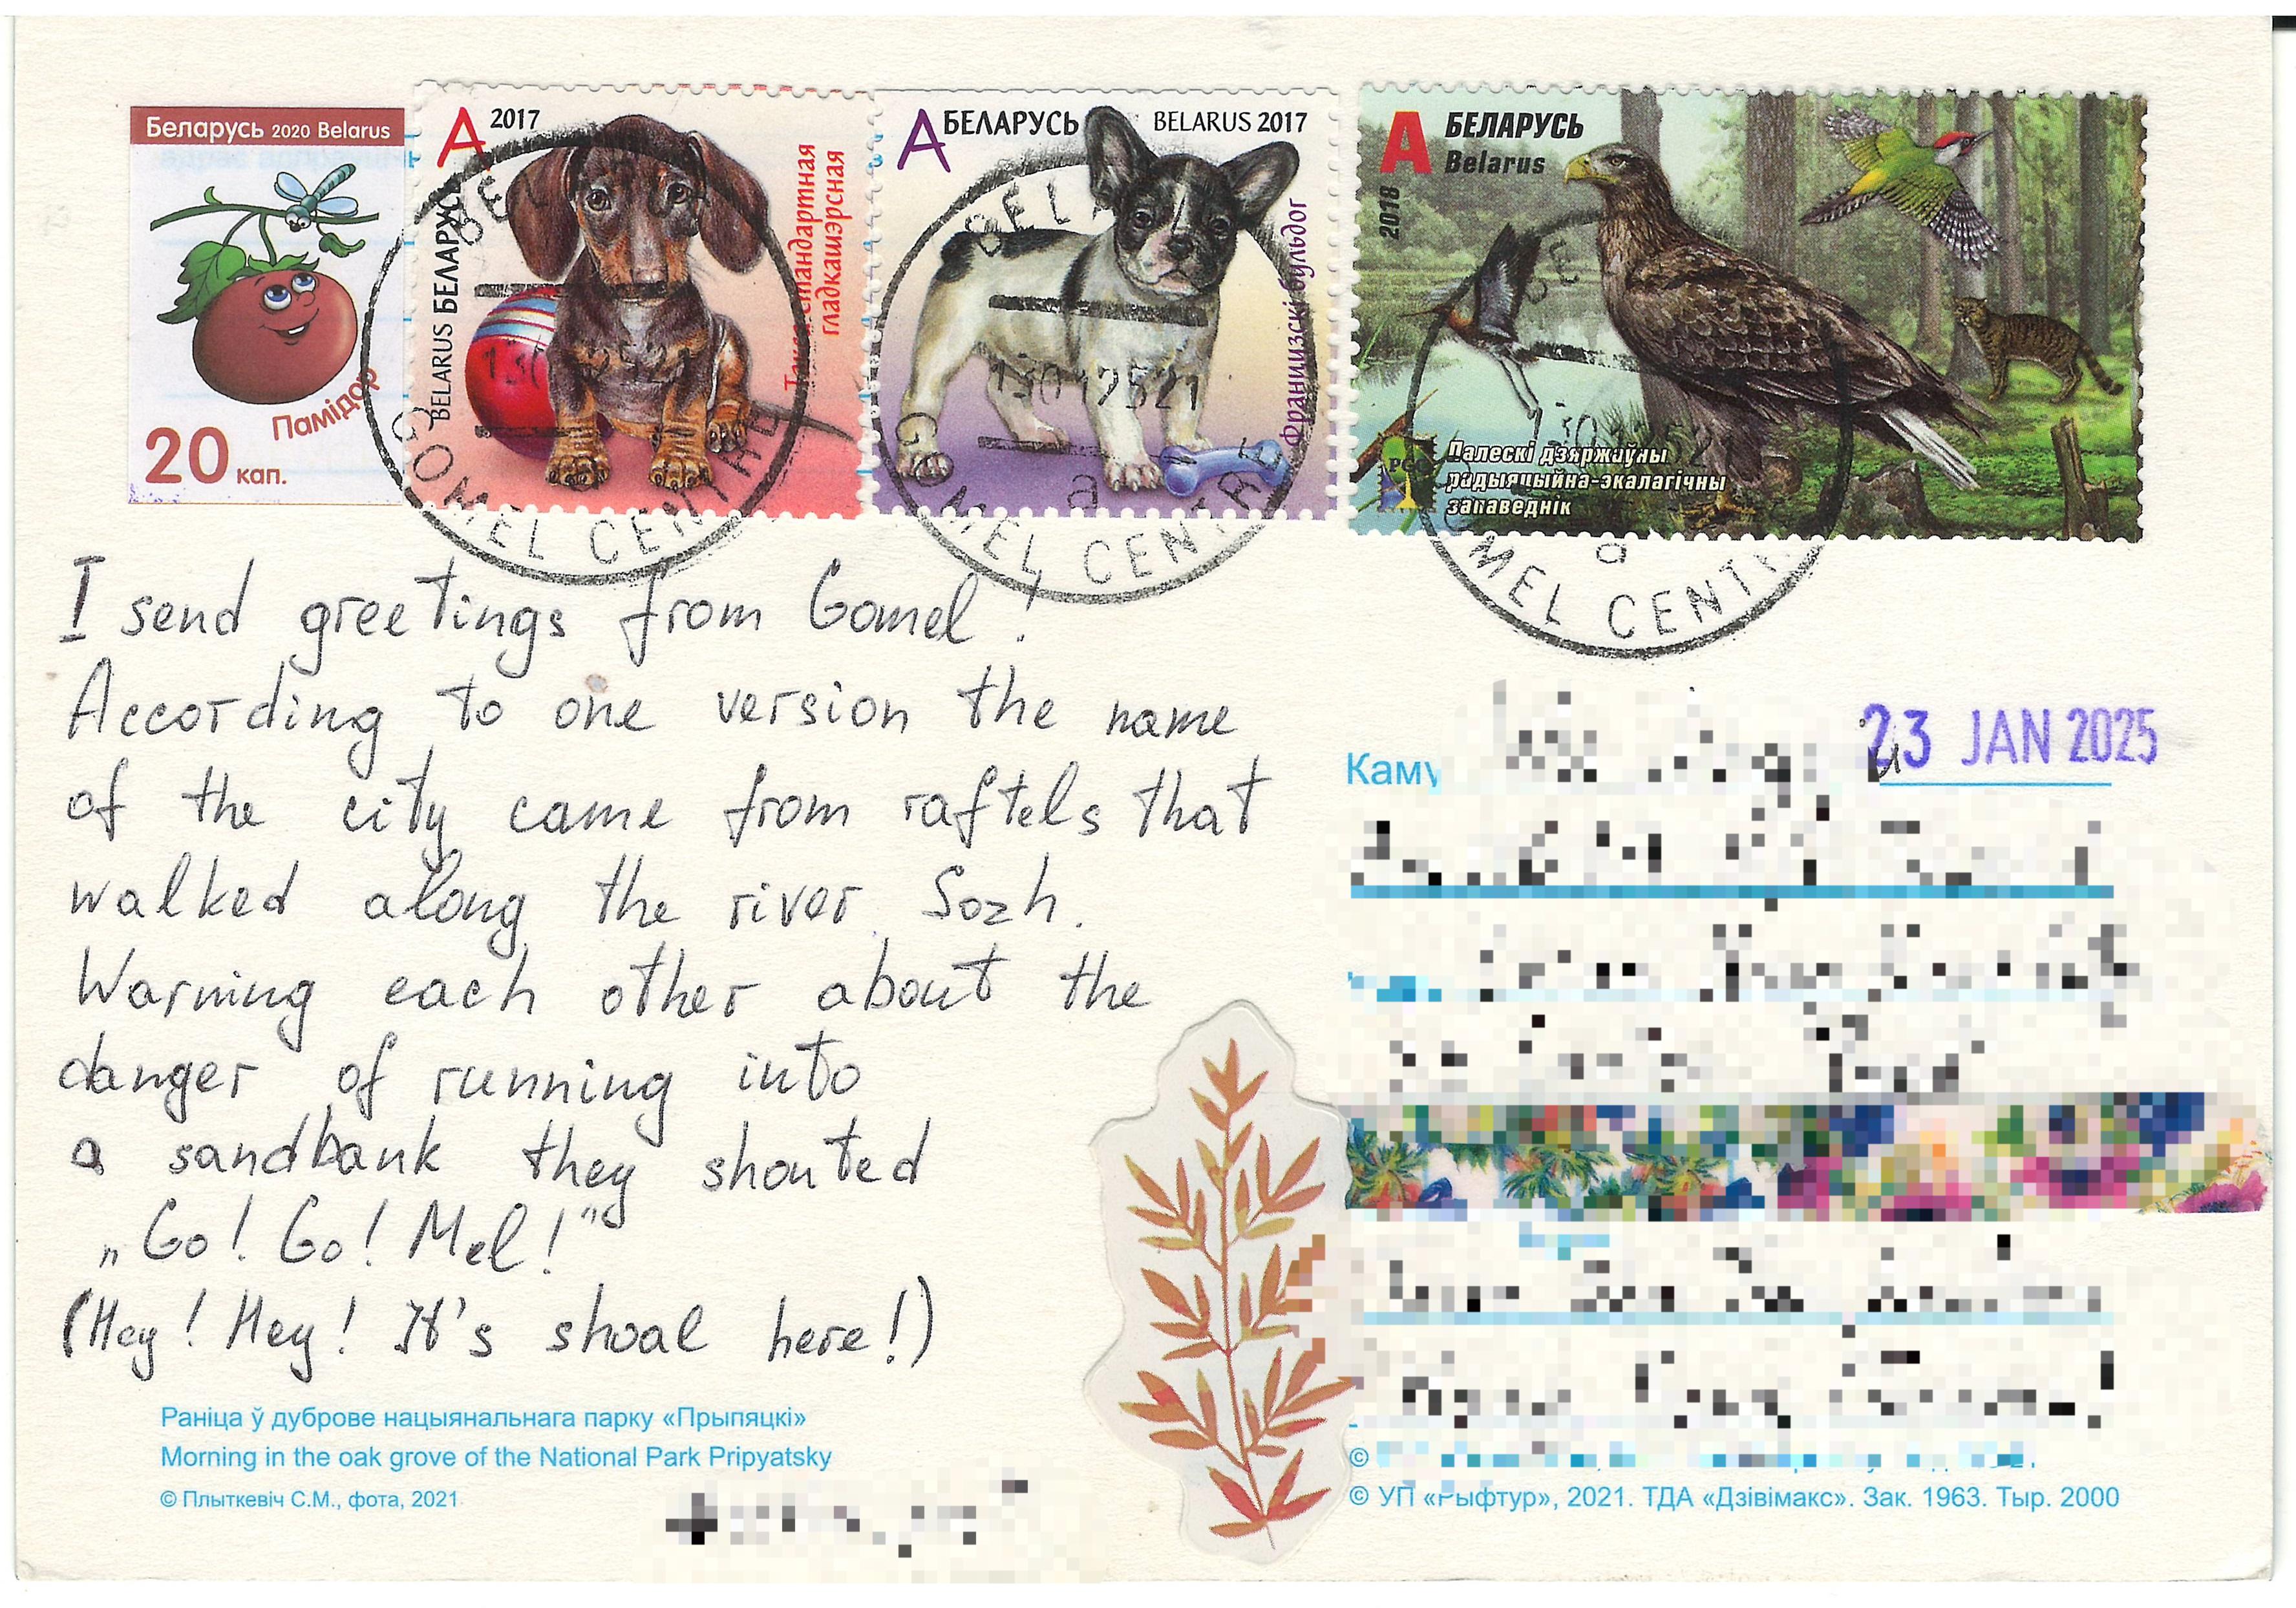 Беларусь 2020 Belarus
Памідор
20 кап.
А 2017
BELARUS БЕЛАРУСЬ
Такса стандартная
гладкашэрсная
А БЕЛАРУСЬ BELARUS 2017
Французскі бульдог
А БЕЛАРУСЬ
Belarus
2018
Палескі дзяржаўны
радыяцыйна-экалагічны
запаведнік
GOMEL CENTRE
GOMEL CENTRE
I send greetings from Gomel!
According to one version the name
of the city came from raftels that
walked along the river Sozh.
Warning each other about the
danger of running into
a sandbank they shouted
„Go! Go! Mel!”
(Hey! Hey! It's shoal here!)
23 JAN 2025
Раніца ў дуброве нацыянальнага парку «Прыпяцкі»
Morning in the oak grove of the National Park Pripyatsky
© Плыткевіч С.М., фота, 2021
© УП «Рыфтур», 2021. ТДА «Дзівімакс». Зак. 1963. Тыр. 2000